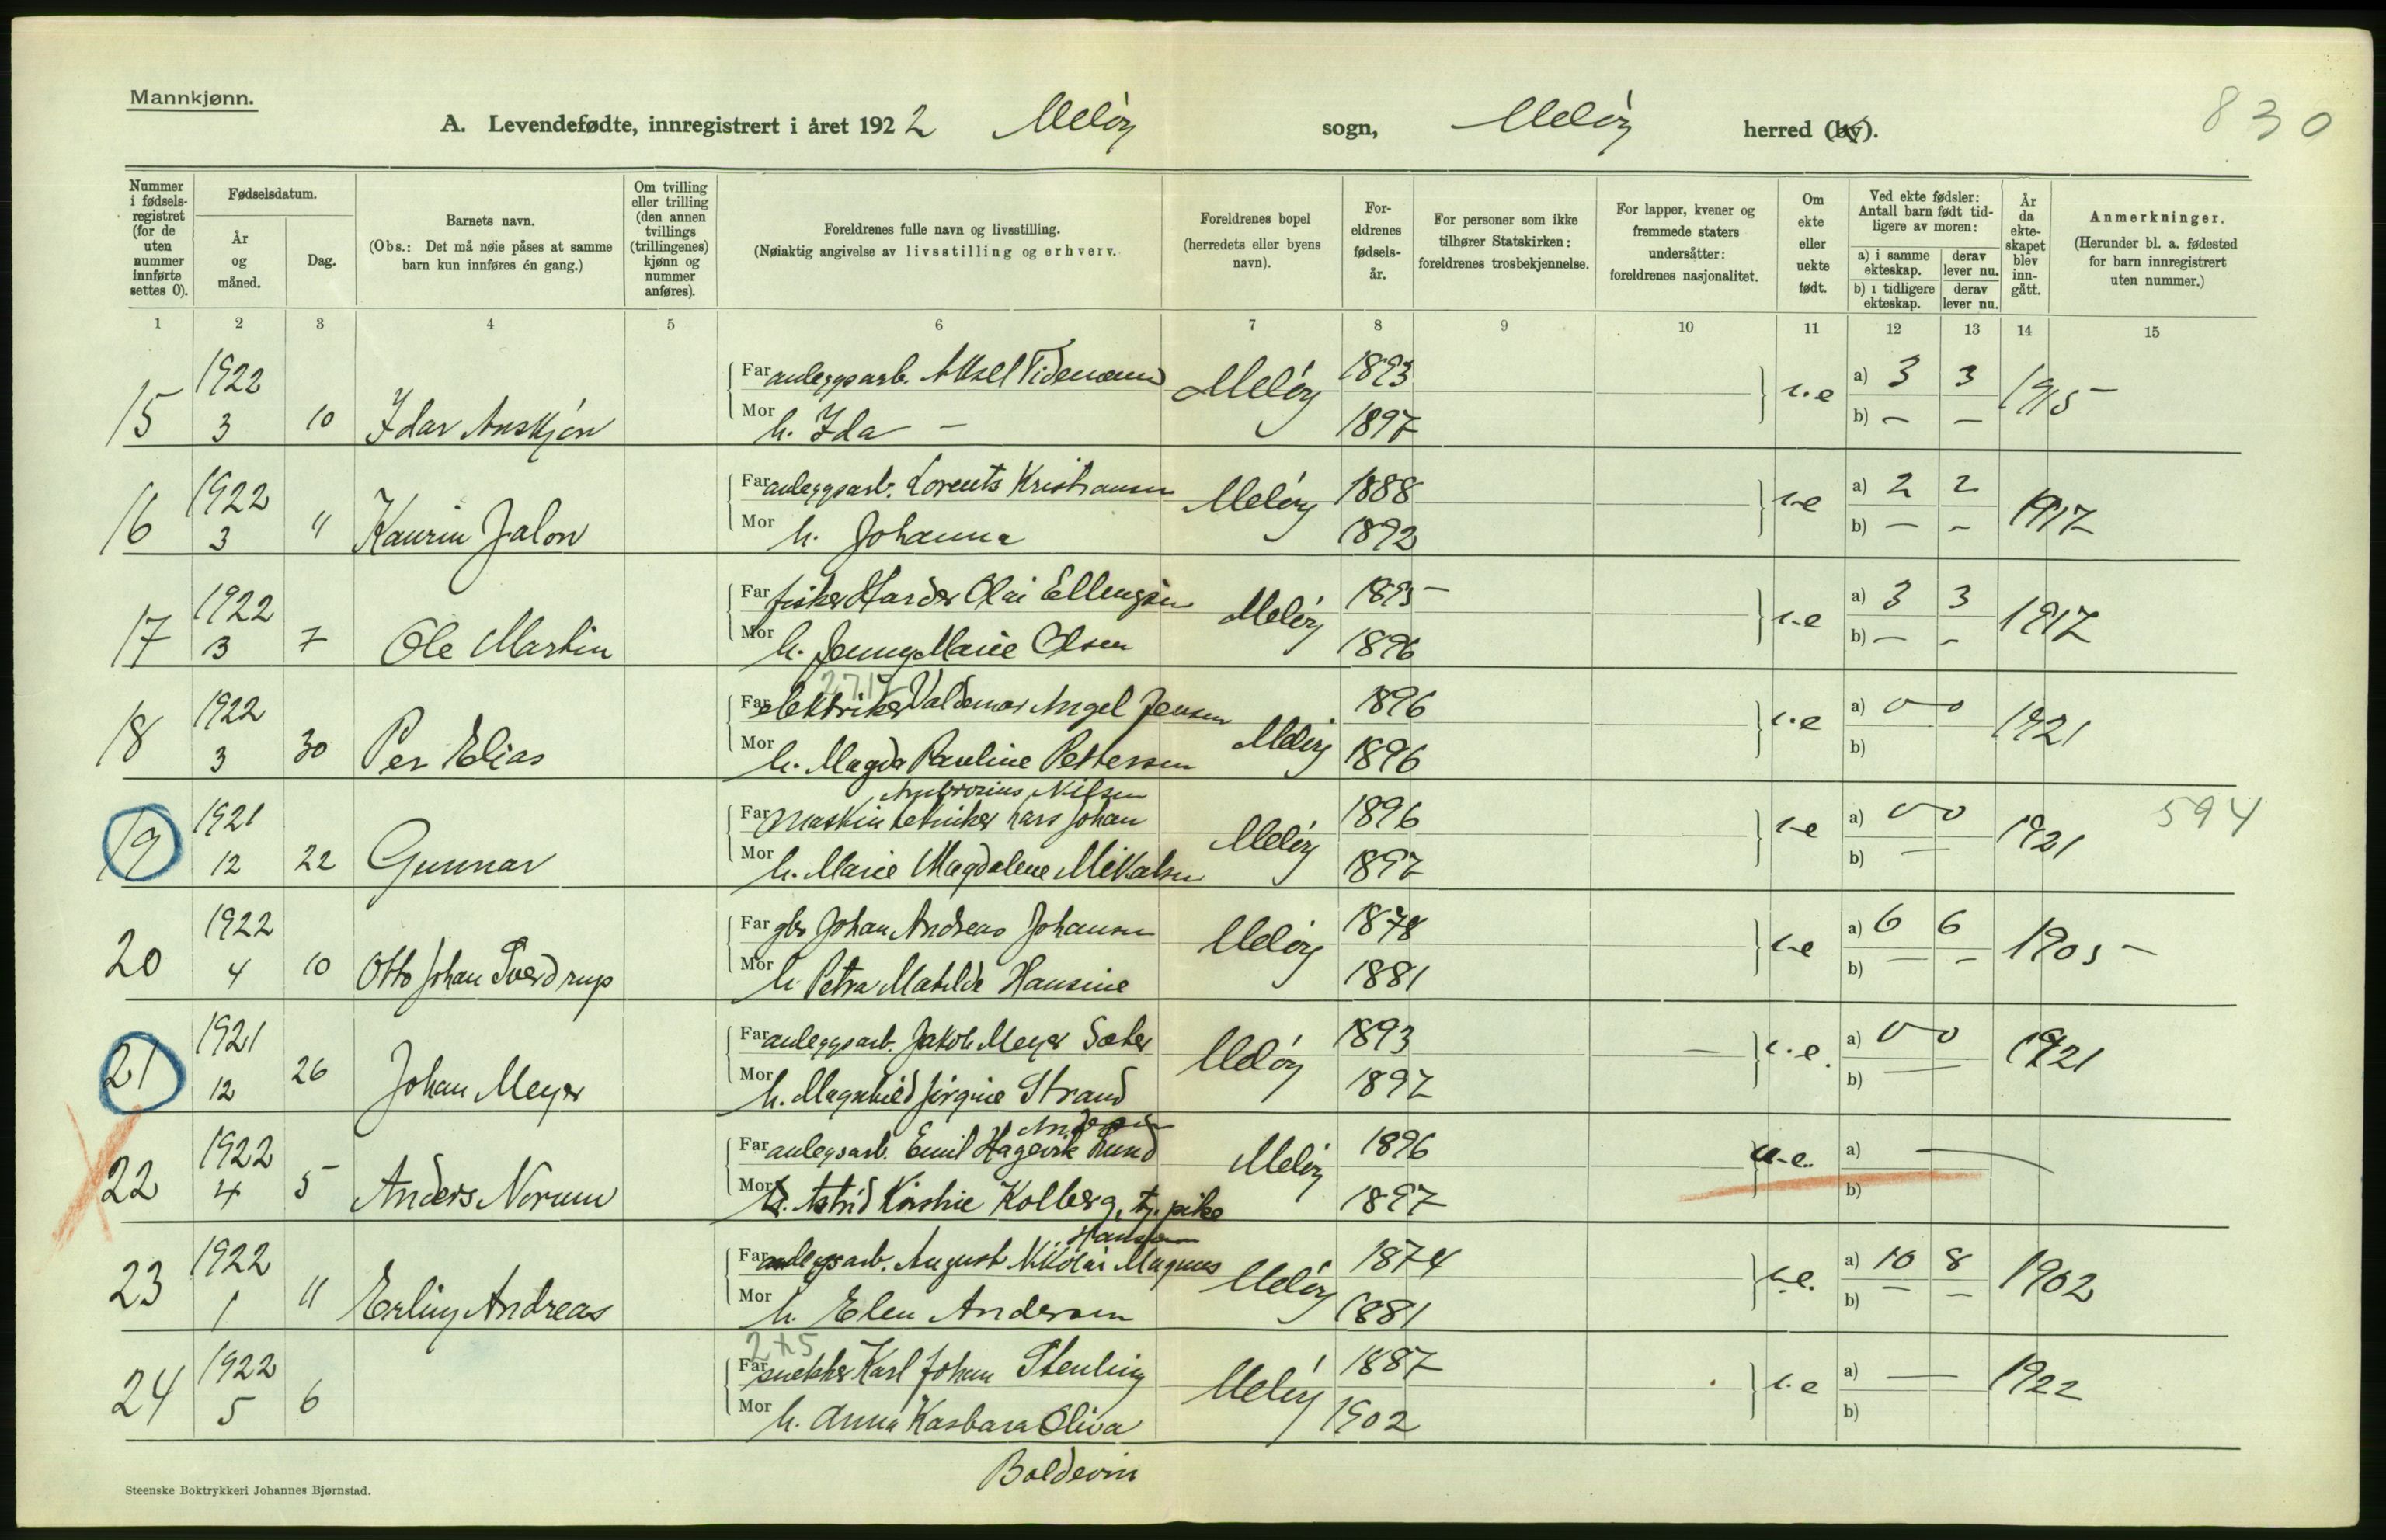 Mannkjønn.
830
A. Levendefødte, innregistrert i året 1922 Meløy sogn, Meløy herred (by).
Nummer i fødselsregistret (for de uten nummer innførte settes 0).
Fødselsdatum.
År og måned.
Dag.
Barnets navn.
(Obs.: Det må nøie påses at samme barn kun innføres én gang.)
Om tvilling eller trilling (den annen tvillings (trillingenes) kjønn og nummer anføres).
Foreldrenes fulle navn og livsstilling.
(Nøiaktig angivelse av livsstilling og erhverv.
Foreldrenes bopel (herredets eller byens navn).
Foreldrenes fødselsår.
For personer som ikke tilhører Statskirken: foreldrenes trosbekjennelse.
For lapper, kvener og fremmede staters undersåtter: foreldrenes nasjonalitet.
Om ekte eller uekte født.
Ved ekte fødsler: Antall barn født tidligere av moren:
a) i samme ekteskap. derav lever nu.
b) i tidligere ekteskap. derav lever nu.
År da ekteskapet blev inngått.
Anmerkninger.
(Herunder bl. a. fødested for barn innregistrert uten nummer.)
1 2 3 4 5 6 7 8 9 10 11 12 13 14 15
1922 Far anleggsarb. Aksel Tidemann Meløy 1893 a) 3 3
15 3 10 Idar Anskjøn Mor h. Ida — 1897 e b) — — 1915
1922 Far anleggsarb. Lorents Kristiansen Meløy 1888 a) 2 2
16 3 " Kaurin Jalon Mor h. Johanna 1892 e b) — — 1917
1922 Far fisker Harder Olai Ellengsen Meløy 1895 a) 3 3
17 3 7 Ole Martin Mor h. Jenny Marie Olsen 1896 e b) — — 1917
1922 Far elektriker Valdemar Angel Jensen 1896 a) 0 — 0
18 3 30 Per Elias Mor h. Magda Pauline Pettersen Meløy 1896 e b) 1921
Ambrosius Nilsen
1921 Far Maskintekniker Lars Johan Meløy 1896 a) 0 — 0 594
19 12 22 Gunnar Mor h. Marie Magdalene Mikalsen 1897 e b) — 1921
1922 Far gbr Johan Andreas Johansen Meløy 1878 a) 6 6
20 4 10 Otto Johan Sverdrup Mor h. Petra Matilde Hansine 1881 e b) — — 1905
1921 Far anleggsarb. Jakob Meyer Sæter Meløy 1893 a) 0 — 0
21 12 26 Johan Meyer Mor h. Magnhild Jørgine Strand 1897 — e. b) — 1921
Andersen
1922 Far anlegsarb. Emil Hagevik Lund Meløy 1896 u-e. a) —
22 4 5 Anders Norum Mor h. Astrid Kirstine Kolberg, tj. pike 1897 b)
Hansen
1922 Far anlegsarb. August Nikolai Magnus Meløy 1874 a) 10 8
23 1 11 Erling Andreas Mor h. Elen Andersen 1881 e. b) — — 1902
2x5
1922 Far snekker Karl Johan Stenling Meløy 1887 a) — 1922
24 5 6 Mor h. Anna Kasbara Oliva 1902 e b)
Boldevin
Steenske Boktrykkeri Johannes Bjørnstad.